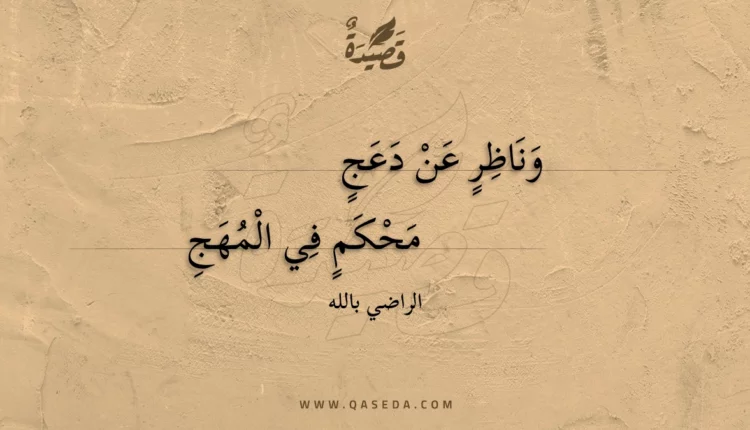 قَصِيدَةٌ
وَنَاظِرٍ عَنْ دَعَجٍ
مَحْكَمٍ فِي الْمُهَجِ
الراضي بالله
WWW.QASEDA.COM